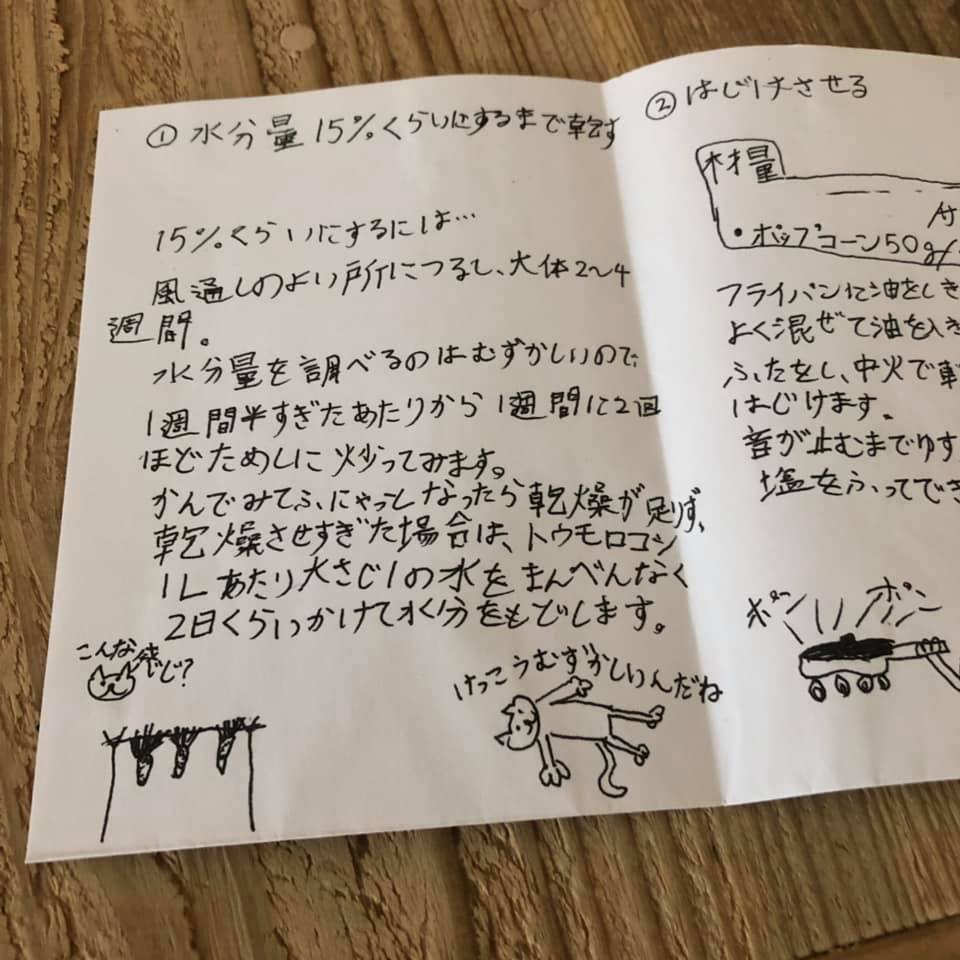 ① 水分量15%くらいにするまで乾す
15%くらいにするには…
風通しのよい所につるし、大体2〜4
週間。
水分量を調べるのはむずかしいので
1週間半すぎたあたりから1週間に2回
ほどためしに炒ってみます。
かんでみてふにゃっとなったら乾燥が足りず、
乾燥させすぎた場合は、トウモロコシ
1Lあたり大さじ1の水をまんべんなく
2日くらいかけて水分をもどします。
こんな感じ?
けっこうむずかしいんだね
② はじけさせる
材量
•ポップコーン50g/
フライパンに油をしき
よく混ぜて油を入き
ふたをし、中火で
はじけます。
音が止むまでゆす
塩をふってでき
ポン
ポン